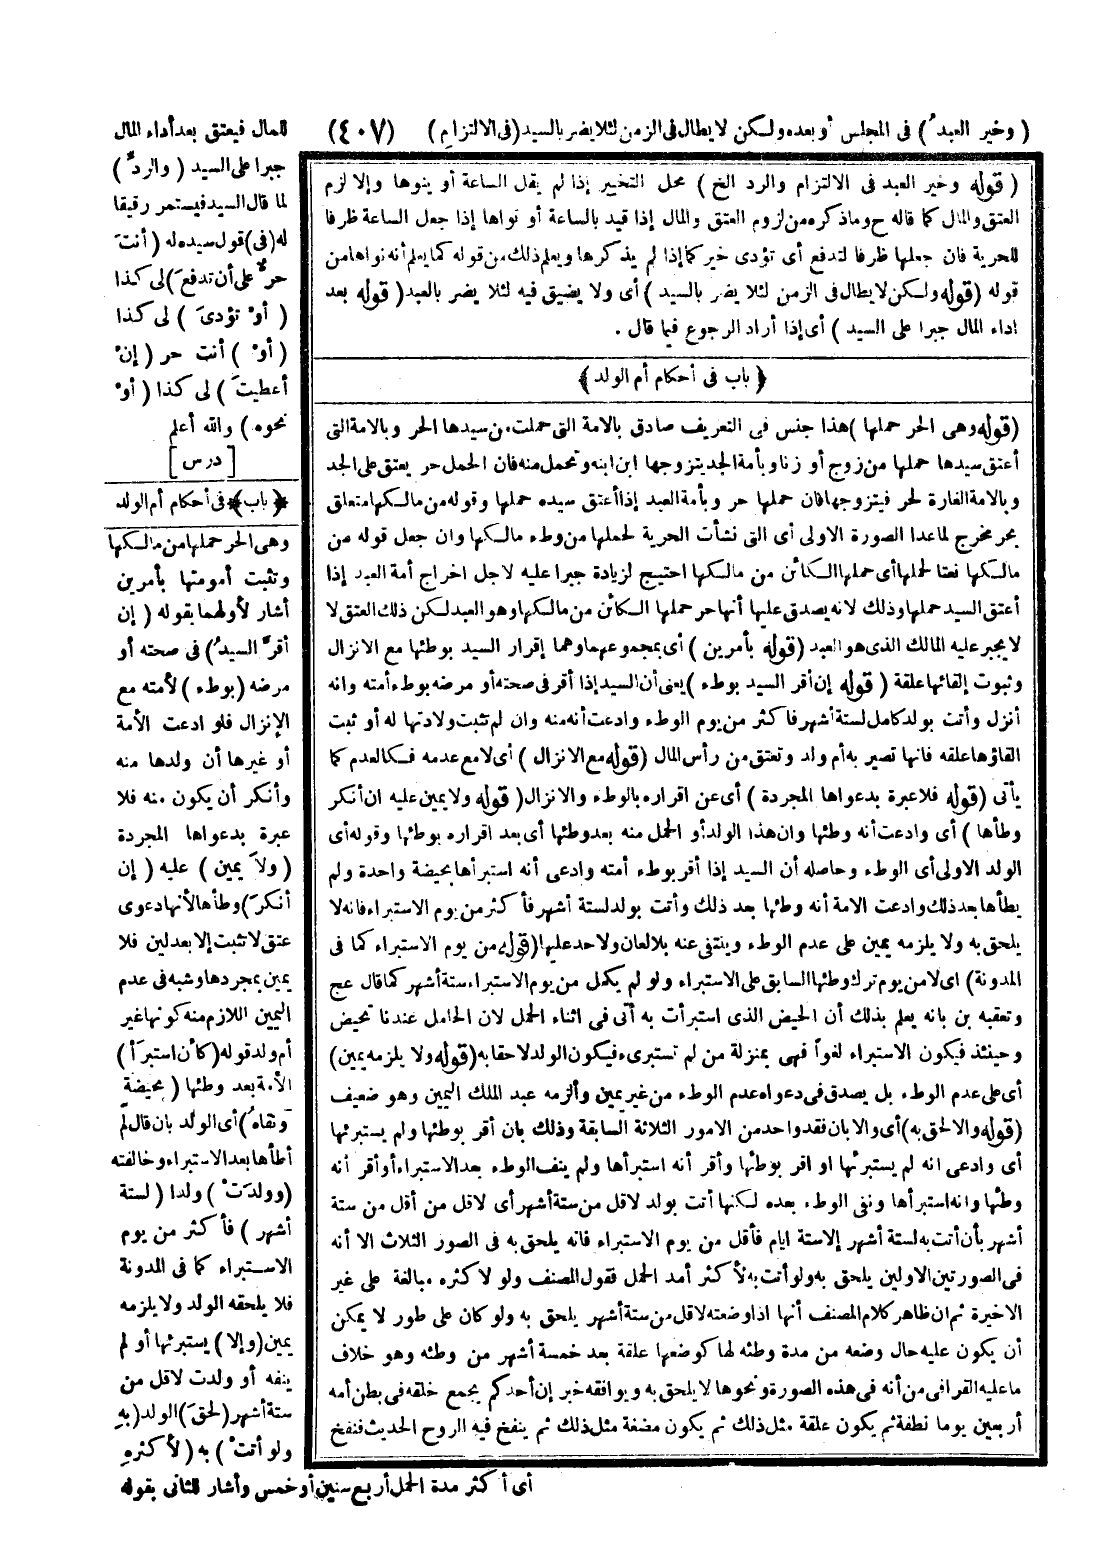 ( وخير العبدُ ) فى المجلس أو بعده ولكن لا يطال فى الزمن لئلا يضر بالسيد ( فى الالتزامِ )
(٤٠٧)
للمال فيعتق بعد أداء المال
جبرا على السيد ( والردِّ )
لما قال السيد فيستمر رقيقا
له (فى) قول سيده له ( أنتَ
حرٌّ على أن تدفعَ ) لى كذا
( أوْ تؤدىَ ) لى كذا
( أوْ ) أنت حر ( إنْ
أعطيتَ ) لى كذا ( أوْ
نحوه ) والله أعلم
[ درس ]
﴿ باب ﴾ فى أحكام أم الولد
وهى الحر حملها من مالكها
وتثبت أمومتها بأمرين
أشار لأولهما بقوله ( إن
أقرَّ السيدُ ) فى صحته أو
مرضه ( بوطء ) لأمته مع
الإنزال فلو ادعت الأمة
أو غيرها أن ولدها منه
وأنكر أن يكون منه فلا
عبرة بدعواها المجردة
( ولاَ يمين ) عليه ( إن
أنكرَ ) وطأها لأنها دعوى
عتق لا تثبت إلا بعدلين فلا
يمين بمجردها وشبه فى عدم
اليمين اللازم منه كونها غير
أم ولد قوله ( كأن استبرَأَ )
الأمة بعد وطئها ( بحيضةٍ
ونفاهُ ) أى الولد بان قال لم
أطأها بعد الاستبراء وخالفته
( وولدَتْ ) ولدا ( لستة
أشهر ) فأكثر من يوم
الاستبراء كما فى المدونة
فلا يلحقه الولد ولا يلزمه
يمين (وإلا) يستبرئها أو لم
ينفه أو ولدت لاقل من
ستة أشهر ( لحقَ ) الولد (بهِ
ولو أتتْ ) به ( لأكثرهِ
( قوله وخير العبد فى الالتزام والرد الخ ) محل التخيير إذا لم يقل الساعة أو ينوها وإلا لزم
العتق والمال كما قاله ح وما ذكره من لزوم العتق والمال إذا قيد بالساعة أو نواها إذا جعل الساعة ظرفا
للحرية فان جعلها ظرفا لتدفع أى تؤدى خير كما إذا لم يذكرها ويعلم ذلك من قوله كما يعلم أنه نواها من
قوله ( قوله ولكن لا يطال فى الزمن لئلا يضر بالسيد ) أى ولا يضيق فيه لئلا يضر بالعبد ( قوله بعد
اداء المال جبرا على السيد ) أى إذا أراد الرجوع فيما قال .
﴿ باب فى أحكام أم الولد ﴾
( قوله وهى الحر حملها ) هذا جنس فى التعريف صادق بالامة التى حملت من سيدها الحر وبالامة التى
أعتق سيدها حملها من زوج أو زنا وبأمة الجد يتزوجها ابن ابنه وتحمل منه فان الحمل حر يعتق على الجد
وبالامة الغارة لحر فيتزوجها فان حملها حر وبأمة العبد إذا أعتق سيده حملها وقوله من مالكها متعلق
بحر مخرج لما عدا الصورة الاولى أى التى نشأت الحرية لحملها من وطء مالكها وان جعل قوله من
مالكها نعتا لحملها أى حملها الكائن من مالكها احتيج لزيادة جبرا عليه لاجل اخراج أمة العبد إذا
أعتق السيد حملها وذلك لانه يصدق عليها أنها حر حملها الكائن من مالكها وهو العبد لكن ذلك العتق لا
لا يجبر عليه المالك الذى هو العبد ( قوله بأمرين ) أى بمجموعهما وهما إقرار السيد بوطئها مع الانزال
وثبوت إلقائها علقة ( قوله إن أقر السيد بوطء ) يعنى أن السيد إذا أقر فى صحته أو مرضه بوطء أمته وانه
أنزل وأتت بولد كامل لستة أشهر فاكثر من يوم الوطء وادعت أنه منه وان لم تثبت ولادتها له أو ثبت
القاؤها علقة فانها تصير به أم ولد وتعتق من رأس المال ( قوله مع الانزال ) أى لا مع عدمه فكالعدم كما
يأتى ( قوله فلا عبرة بدعواها المجردة ) أى عن اقراره بالوطء والانزال ( قوله ولا يمين عليه ان أنكر
وطأها ) أى وادعت أنه وطئها وان هذا الولد أو الحمل منه بعد وطئها أى بعد اقراره بوطئها وقوله أى
الولد الاولى أى الوطء وحاصله أن السيد إذا أقر بوطء أمته وادعى أنه استبرأها بحيضة واحدة ولم
يطأها بعد ذلك وادعت الامة أنه وطئها بعد ذلك وأتت بولد لستة أشهر فأكثر من يوم الاستبراء فانه لا
يلحق به ولا يلزمه يمين على عدم الوطء وينتفى عنه بلا لعان ولا حد عليها ( قوله من يوم الاستبراء كما فى
المدونة ) اى لا من يوم ترك وطئها السابق على الاستبراء ولو لم يكمل من يوم الاستبراء ستة أشهر كما قال عج
وتعقبه بن بانه يعلم بذلك أن الحيض الذى استبرأت به أتى فى اثناء الحمل لان الحامل عندنا تحيض
وحينئذ فيكون الاستبراء لغوا فهى بمنزلة من لم تستبرىء فيكون الولد لاحقا به ( قوله ولا يلزمه يمين)
أى على عدم الوطء بل يصدق فى دعواه عدم الوطء من غير يمين وألزمه عبد الملك اليمين وهو ضعيف
( قوله والا لحق به ) أى والا بان فقد واحد من الامور الثلاثة السابقة وذلك بان أقر بوطئها ولم يستبرئها
أى وادعى انه لم يستبرئها او اقر بوطئها وأقر أنه استبرأها ولم ينف الوطء بعد الاستبراء أو أقر أنه
وطئها وانه استبرأها ونفى الوطء بعده لكنها أتت بولد لاقل من ستة أشهر أى لاقل من أقل من ستة
أشهر بأن أتت به لستة أشهر إلا ستة ايام فأقل من يوم الاستبراء فانه يلحق به فى الصور الثلاث الا أنه
فى الصورتين الاولين يلحق به ولو أتت به لأكثر أمد الحمل فقول المصنف ولو لأكثره مبالغة على غير
الاخيرة ثم ان ظاهر كلام المصنف أنها اذا وضعته لاقل من ستة أشهر يلحق به ولو كان على طور لا يمكن
أن يكون عليه حال وضعه من مدة وطئه لها كوضعها علقة بعد خمسة أشهر من وطئه وهو خلاف
ما عليه القرافى من أنه فى هذه الصورة ونحوها لا يلحق به ويوافقه خبر إن أحدكم يجمع خلقه فى بطن أمه
أربعين يوما نطفة ثم يكون علقة مثل ذلك ثم يكون مضغة مثل ذلك ثم ينفخ فيه الروح الحديث فنفخ
أى أكثر مدة الحمل أربع سنين أو خمس وأشار للثانى بقوله